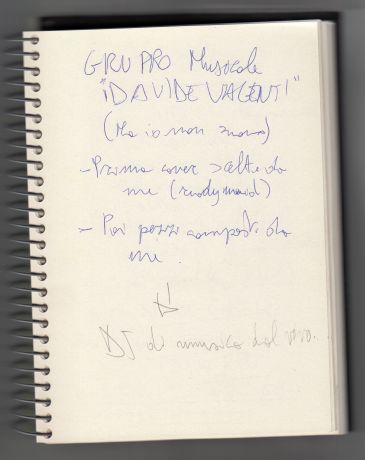 GRUPPO Musicale
"I DAVIDE VAGENTI"
(Ma io non suono)
- Prima cover scelte da
me (readymaid)
- Poi pezzi composti da
me.
DJ di musica dal vivo.